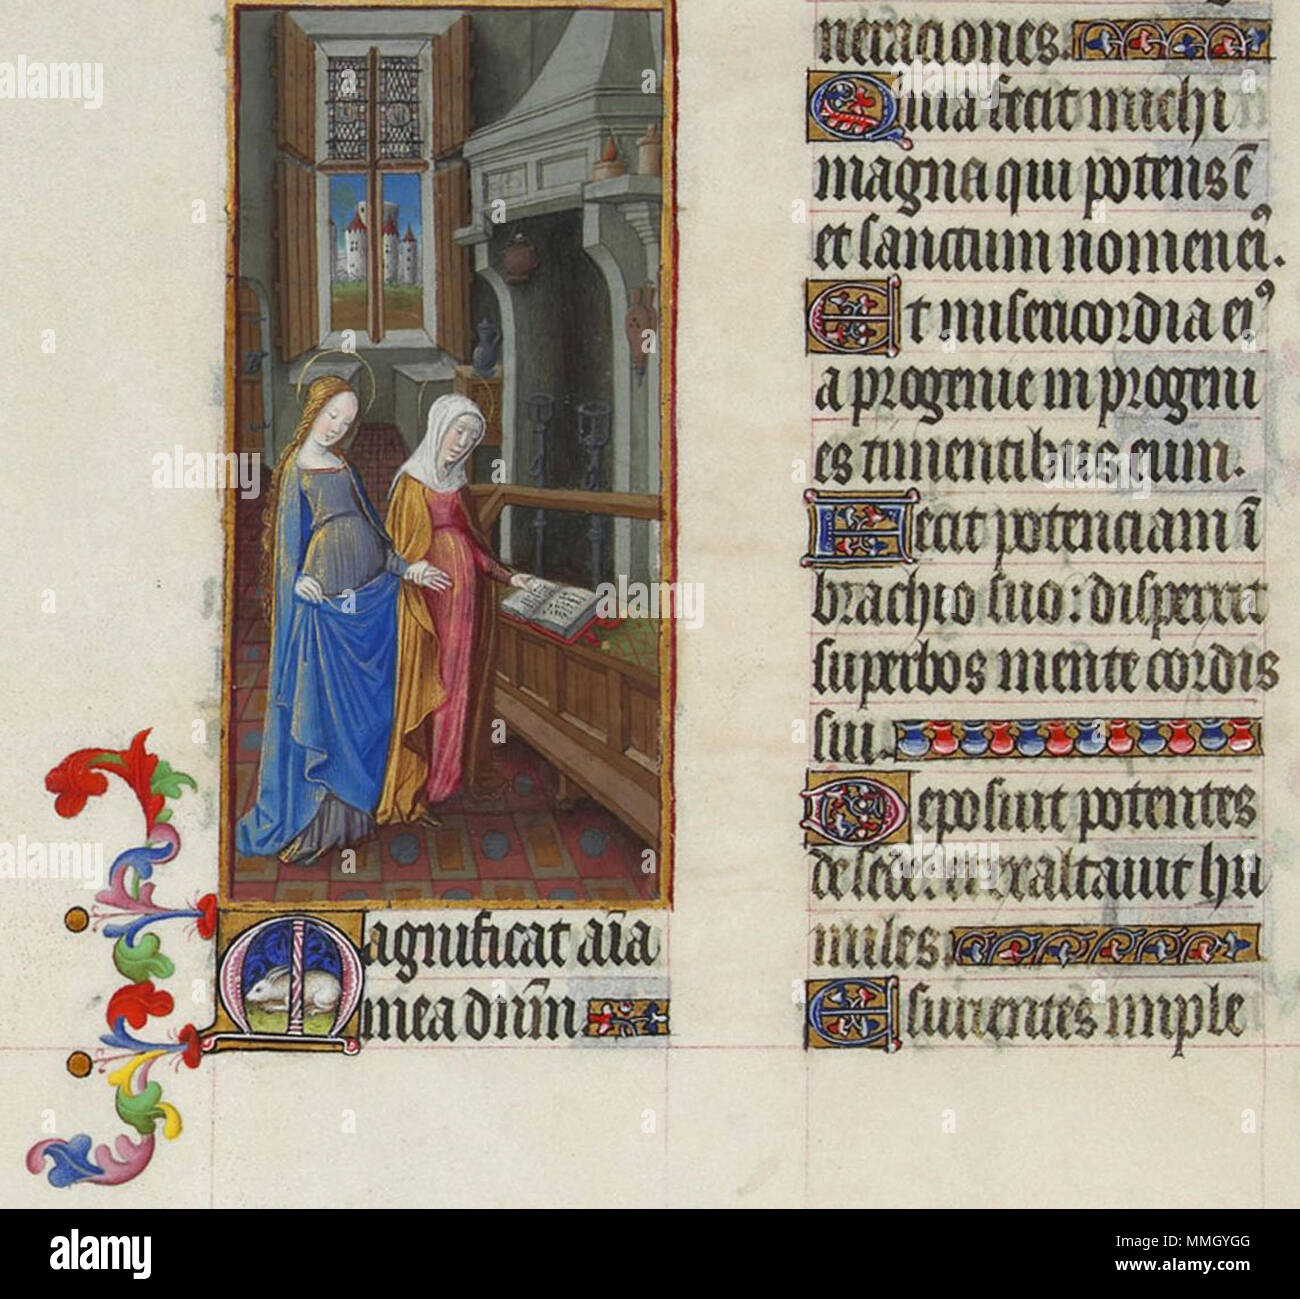 Magnificat aīa
mea dn̄m
neraciones.
Quia fecit michi
magna qui potens ē
et sanctum nomen eiꝰ.
Et misericordia eiꝰ
a progenie in progeni
es timentibus eum.
Fecit potenciam ī
brachio suo: dispersit
superbos mente cordis
sui.
Deposuit potentes
de sede: et exaltavit hu
miles.
Esurientes imple
alamy
a
MMGYGG
www.alamy.com